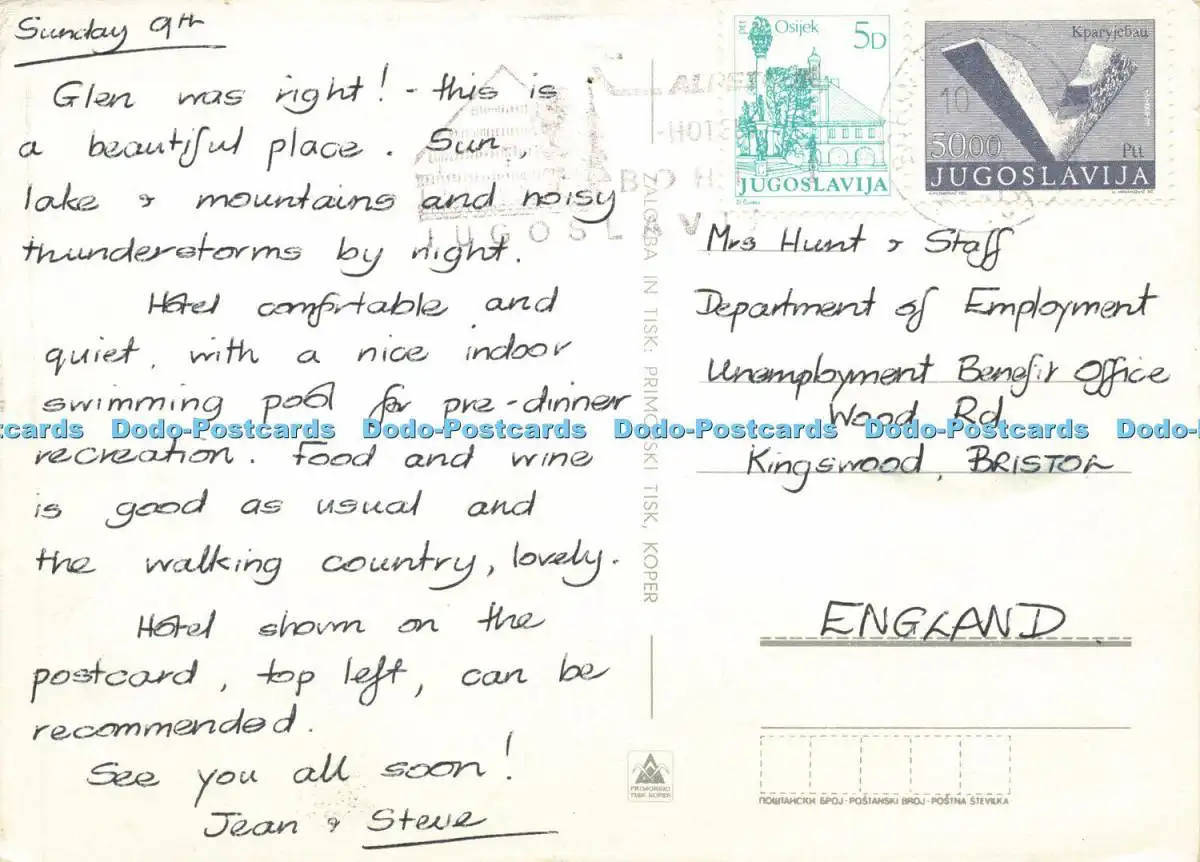 Sunday 9th
Glen was right! - this is
a beautiful place. Sun,
lake & mountains and noisy
thunderstorms by night.
Hotel comfortable and
quiet, with a nice indoor
swimming pool for pre-dinner
recreation. Food and wine
is good as usual and
the walking country, lovely.
Hotel shown on the
postcard, top left, can be
recommended.
See you all soon!
Jean & Steve
ZALOŽBA IN TISK: PRIMORSKI TISK, KOPER
PRIMORSKI
TISK KOPER
JUGOSLAVIJA
Osijek
5D
JUGOSLAVIJA
Краљујевац
10
50,00
Ptt
JUGOSLAVIJA
Mrs Hunt & Staff
Department of Employment
Unemployment Benefit Office
Wood Rd
Kingswood, BRISTOL
ENGLAND
ПОШТАНСКИ БРОЈ-POŠTANSKI BROJ-POŠTNA ŠTEVILKA
Dodo-Postcards Dodo-Postcards Dodo-Postcards Dodo-Postcards